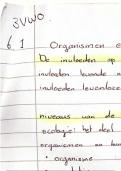 3VWO.
6.1 Organismen e
De invloeden op
invloeden levende n
invloeden levenloze
niveaus van de
ecologie: het deel
organismen en hun
• organisme